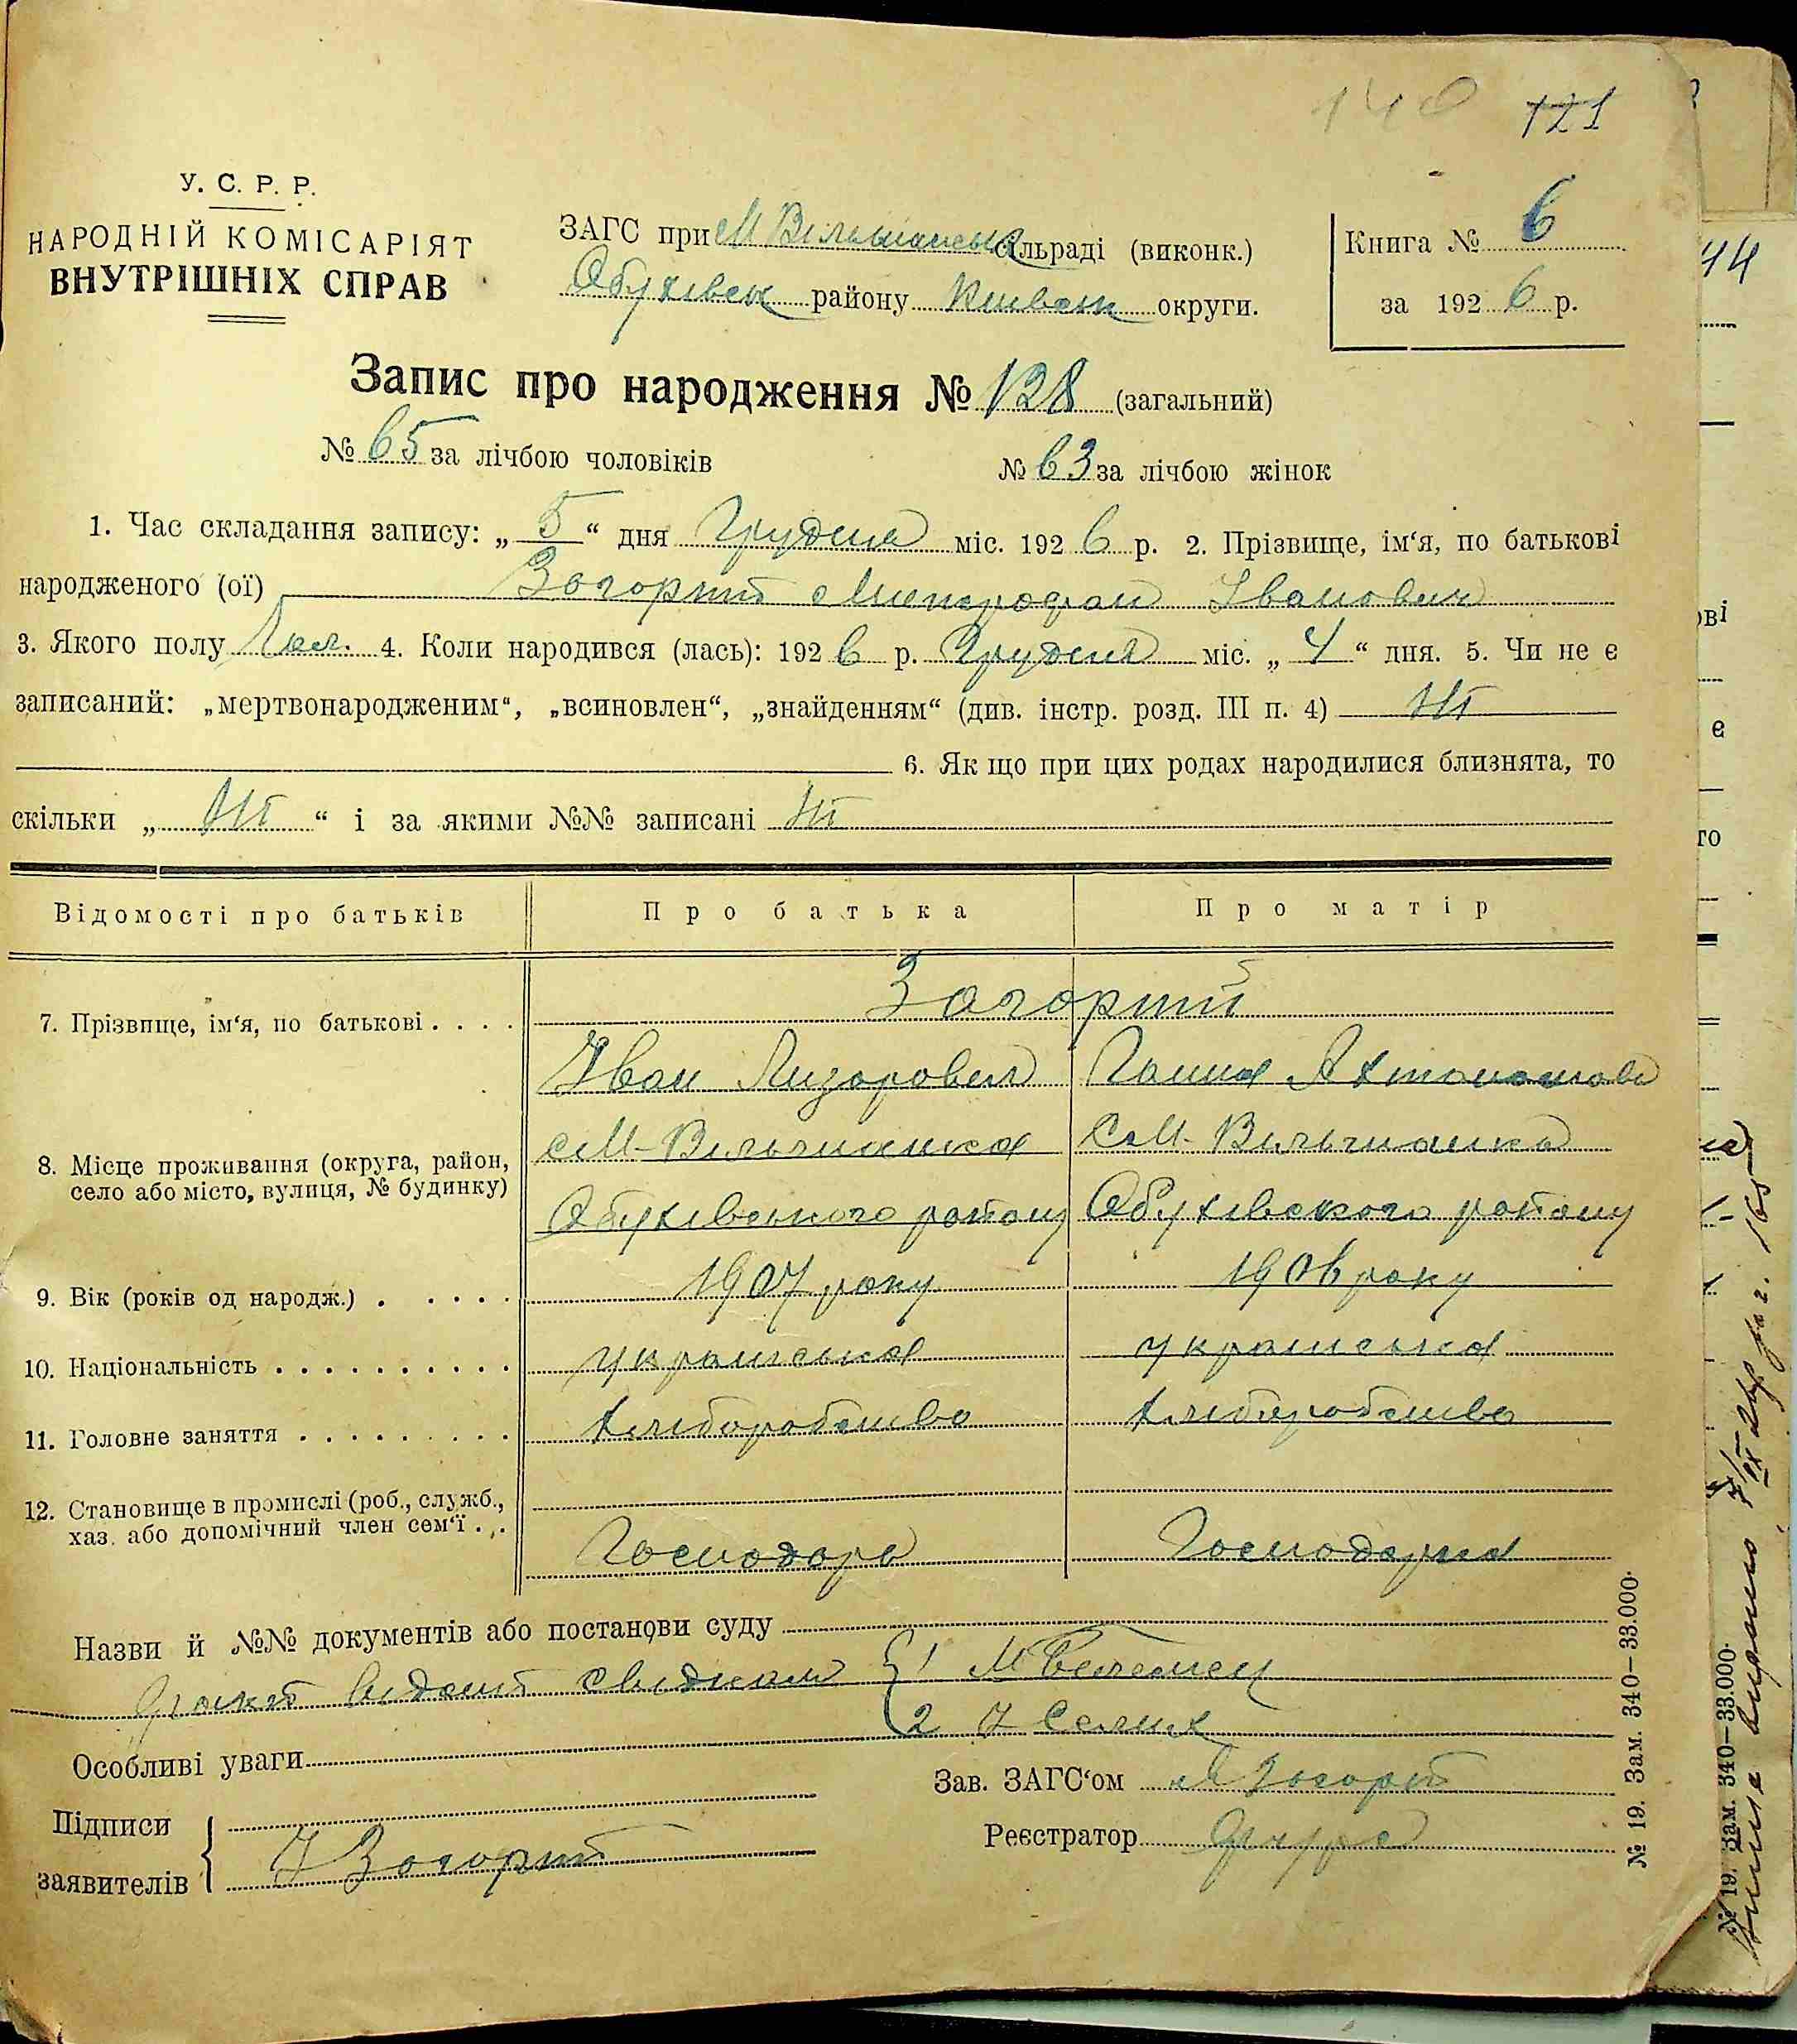 140 121
У. С. Р. Р.
НАРОДНІЙ КОМІСАРІЯТ
ВНУТРІШНІХ СПРАВ
ЗАГС при М Вільшанськ сільраді (виконк.)
Обухівськ району Київськ округи.
Книга № 6
за 1926 р.
Запис про народження № 128 (загальний)
№ 65 за лічбою чоловіків № 63 за лічбою жінок
1. Час складання запису: „ 5 “ дня Грудня міс. 1926 р. 2. Прізвище, ім‘я, по батькові
народженого (ої) Загорній Митрофан Іванович
3. Якого полу Чол. 4. Коли народився (лась): 1926 р. Грудня міс. „ 4 “ дня. 5. Чи не є
записаний: „мертвонародженим“, „всиновлен“, „знайденням“ (див. інстр. розд. III п. 4) Ні
6. Як що при цих родах народилися близнята, то
скільки „ Ні “ і за якими №№ записані Ні
Відомості про батьків Про батька Про матір
7. Прізвище, ім‘я, по батькові . . . . Загорній
Іван Лизарович Ганна
8. Місце проживання (округа, район, село або місто, вулиця, № будинку) с М-Вільшанка с М-Вільшанка
Обухівського району Обухівского району
9. Вік (років од народж.) . . . . . 1907 року 1906 року
10. Національність . . . . . . . . . . українська українська
11. Головне заняття . . . . . . . . . хліборобство хліборобство
12. Становище в промислі (роб., служб.,
хаз. або допомічний член сем‘ї . . . Господарь Господарка
Назви й №№ документів або постанови суду
факт відомий свідкам { 1 М
2
Особливі уваги
Зав. ЗАГС‘ом Загорній
Підписи
заявителів { Загорній
Реєстратор
№ 19. Зам. 340—33.000.
44
№ 19. Зам. 340—33.000.